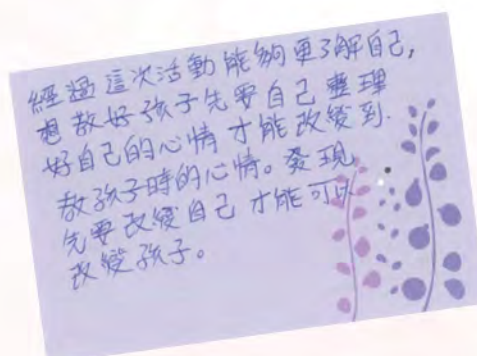 經過這次活動能夠更了解自己，
想教好孩子先要自己整理
好自己的心情才能改變到
教孩子時的心情。發現
先要改變自己才能可以
改變孩子。